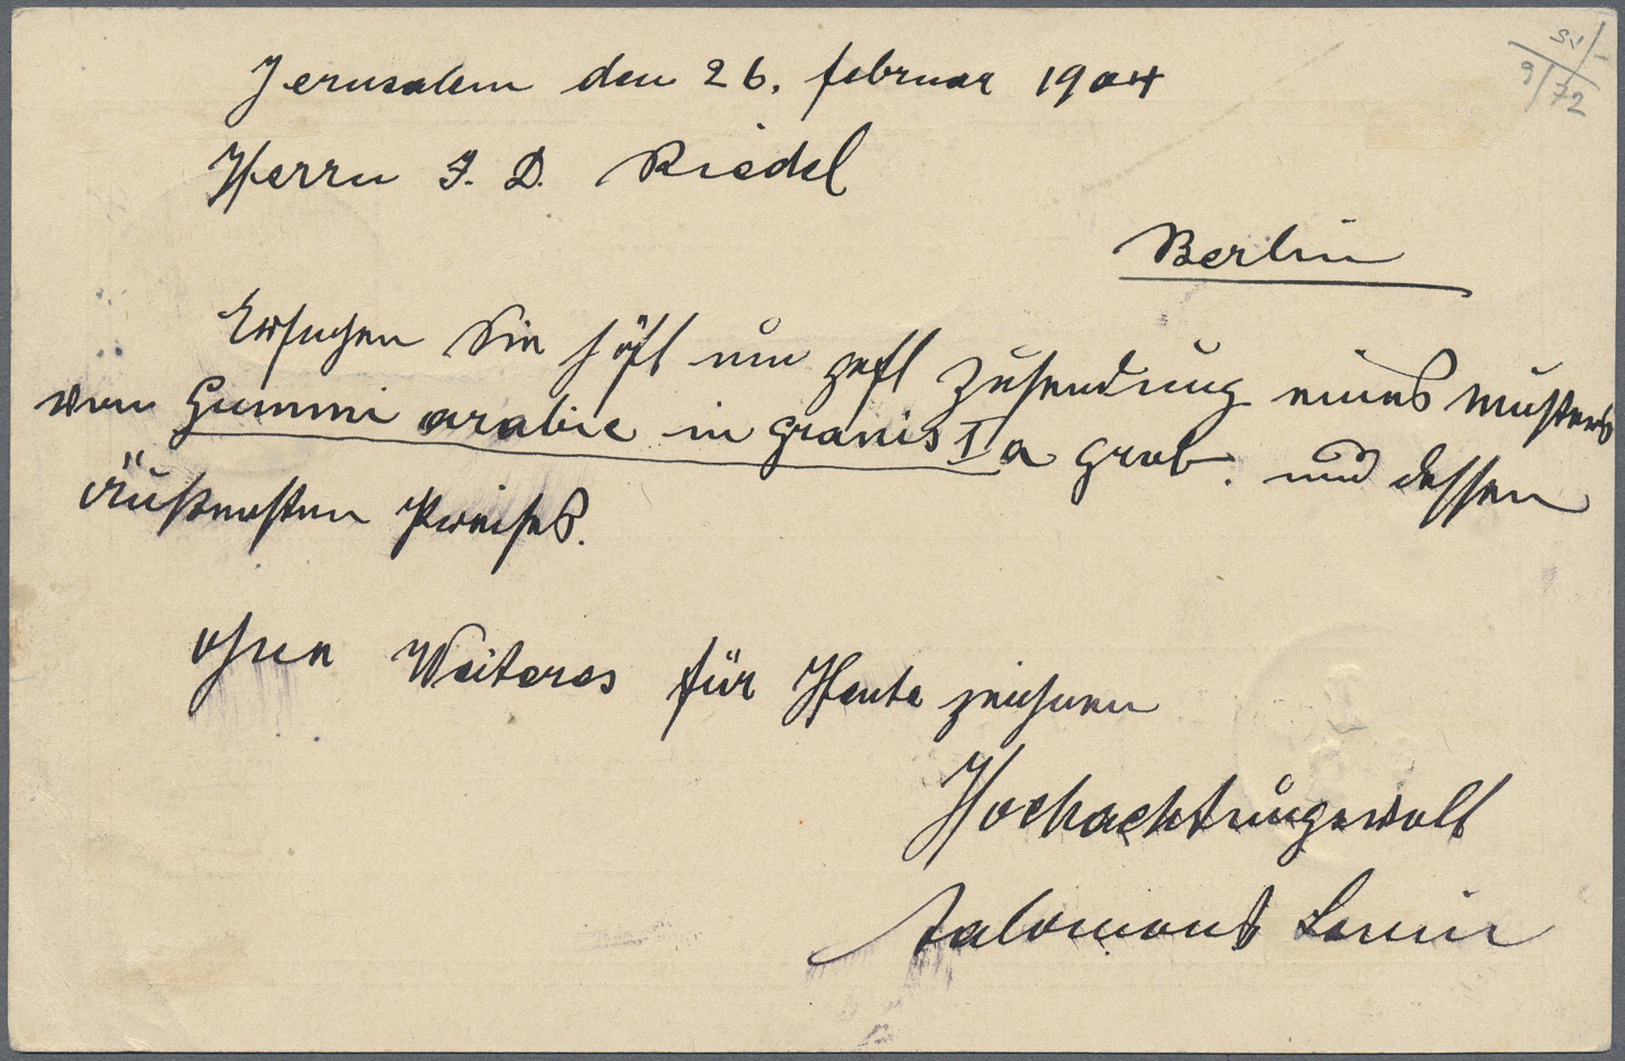 Jerusalem den 26. februar 1904
Herrn J. D. Riedel
Berlin
Ersuchen Sie höfl um gefl Zusendung eines musters
von Gummi arabic in granis Ia grob. und dessen
äußersten Preises.
ohne Weiteres für Heute zeichnen
Hochachtungsvoll